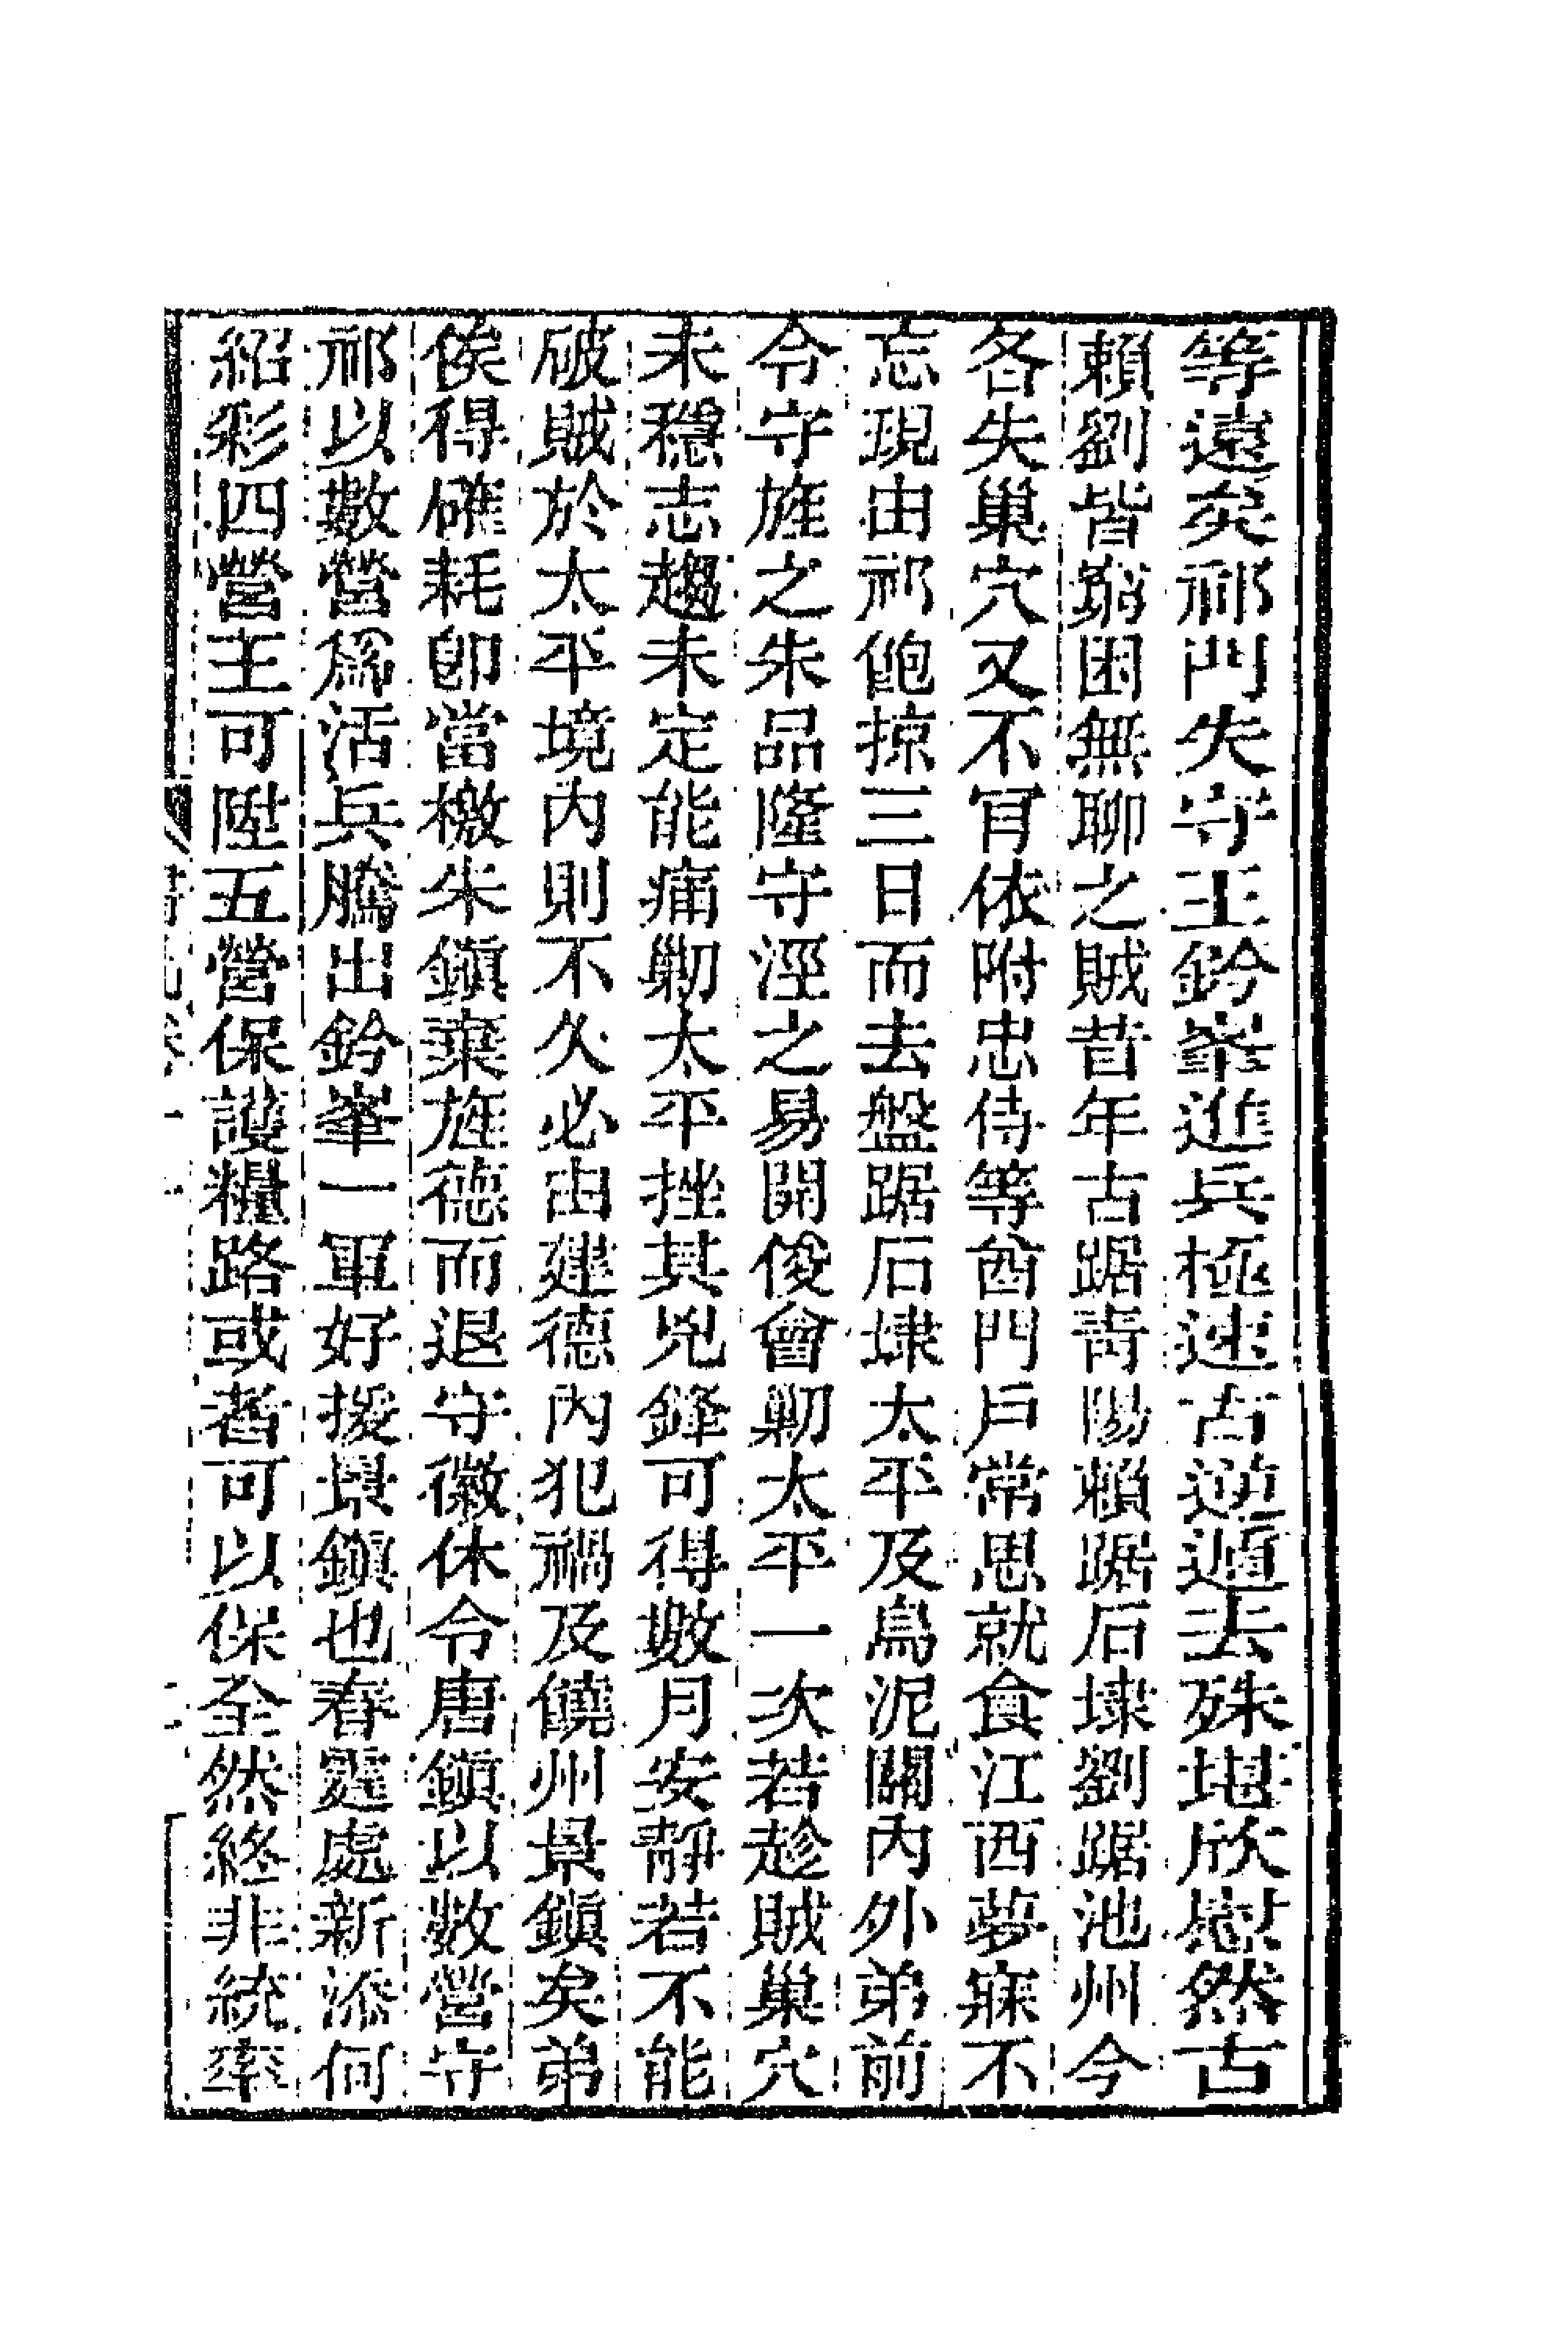 等遠矣祁門失守王鈐峯進兵極速古逆遁去殊堪欣慰然古
賴劉皆窮困無聊之賊昔年古踞靑陽賴踞石埭劉踞池州今
各失巢穴又不肯依附忠侍等酋門戶常思就食江西夢寐不
忘現由祁飽掠三日而去盤踞石埭太平及烏泥關內外弟前
令守旌之朱品隆守涇之易開俊會勦太平一次若趁賊巢穴
未穩志趨未定能痛勦太平挫其兇鋒可得數月安靜若不能
破賊於太平境內則不久必由建德內犯禍及饒州景鎭矣弟
俟得確耗卽當檄朱鎭棄旌德而退守徽休令唐鎭以數營守
祁以數營爲活兵騰出鈐峯一軍好援景鎭也春霆處新添何
紹彩四營王可陞五營保護糧路或者可以保全然終非統率